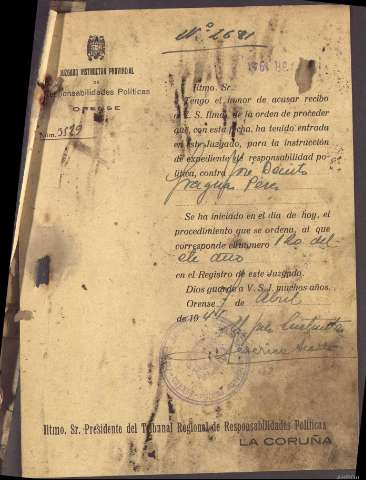 Nº 2621
JUZGADO INSTRUCTOR PROVINCIAL
DE
Responsabilidades Políticas
ORENSE
Núm.
Iltmo. Sr.:
Tengo el honor de acusar recibo
a V. S. Ilma. de la orden de proceder
que, con esta fecha, ha tenido entrada
en este Juzgado, para la instrucción
de expediente de responsabilidad po-
lítica, contra José Benito
Pérez
Se ha iniciado en el día de hoy, el
procedimiento que se ordena, al que
corresponde el número 1 bo del
año
en el Registro de este Juzgado.
Dios guarde a V. S. I. muchos años.
Orense 7 de Abril
de 19
Iltmo. Sr. Presidente del Tribunal Regional de Responsabilidades Políticas
LA CORUÑA